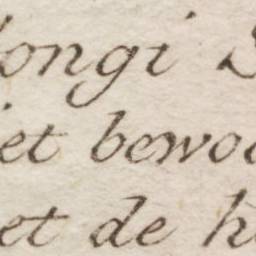 ongi
et bewo
et de h